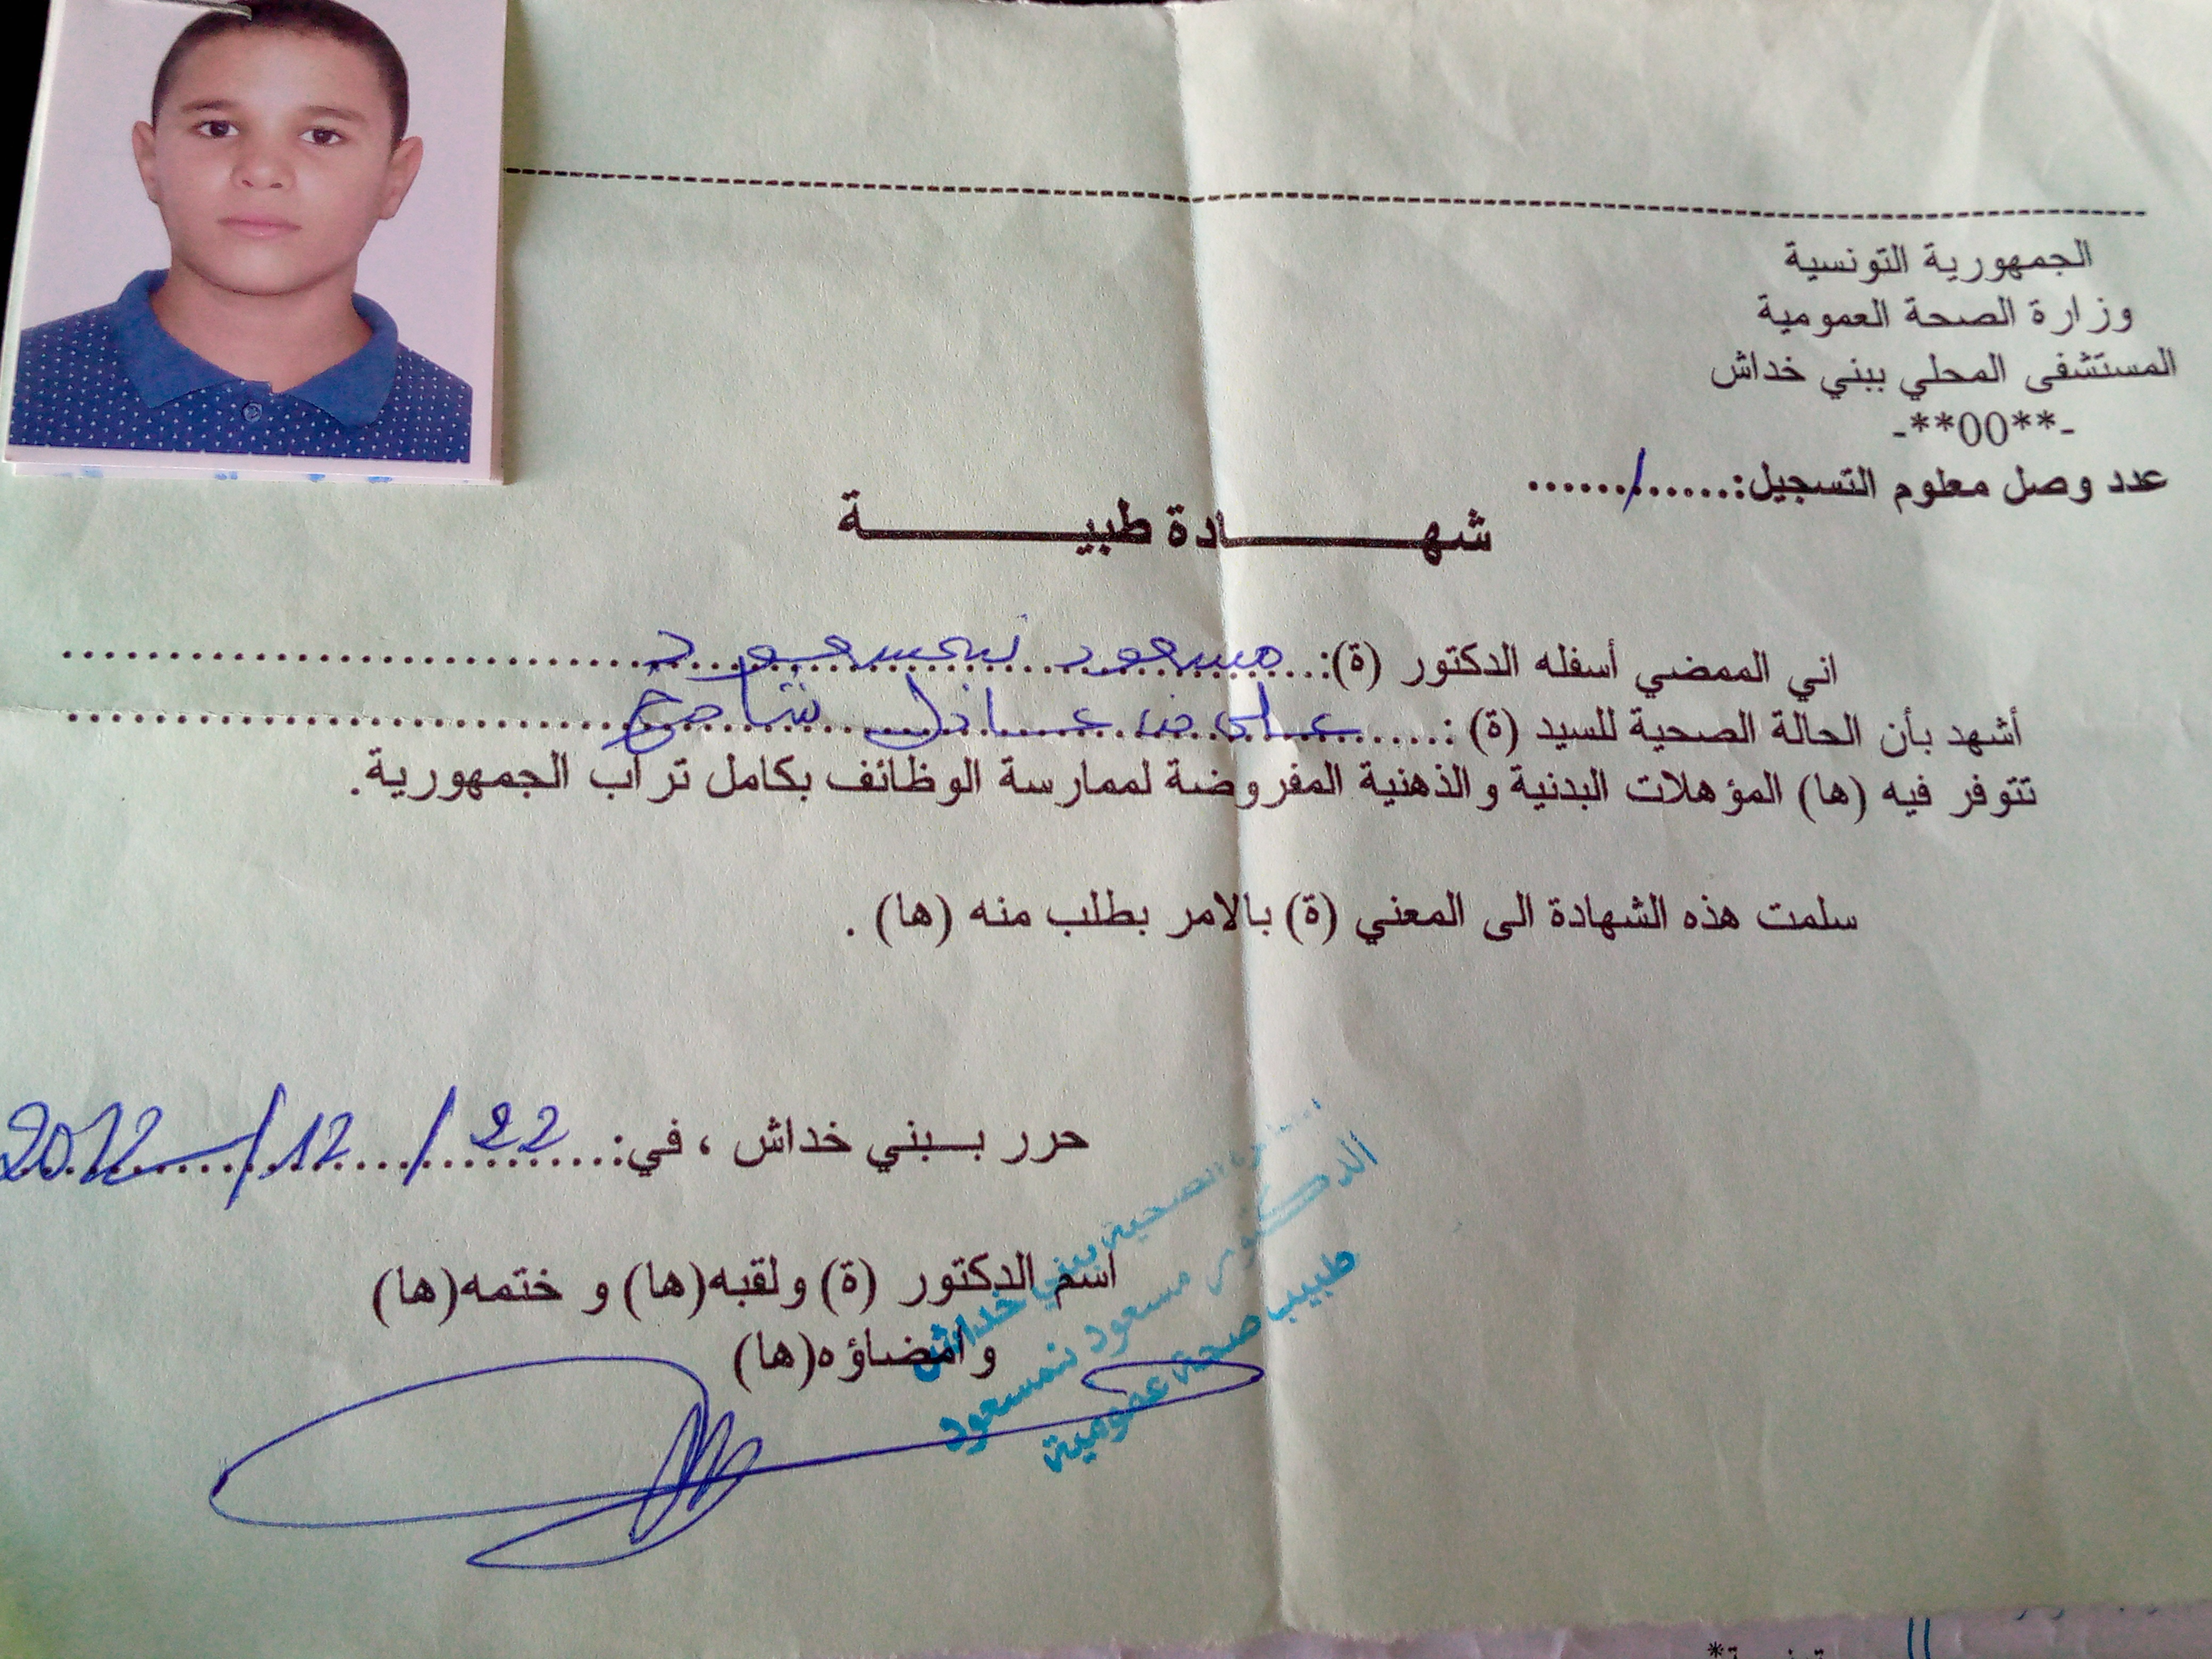 الجمهورية التونسية
وزارة الصحة العمومية
المستشفى المحلي ببني خداش
-**00**-
عدد وصل معلوم التسجيل:....../......
شهـــــــادة طبيـــــــة
اني الممضي أسفله الدكتور (ة):..مسعود نمسعود
أشهد بأن الحالة الصحية للسيد (ة) :.... عادل
تتوفر فيه (ها) المؤهلات البدنية والذهنية المفروضة لممارسة الوظائف بكامل تراب الجمهورية.
سلمت هذه الشهادة الى المعني (ة) بالامر بطلب منه (ها) .
حرر بـــبني خداش ، في:.. 22 / 12 /
اسم الدكتور (ة) ولقبه(ها) و ختمه(ها)
وامضاؤه(ها)
الصحية ببني خداش
الدكتور مسعود نمسعود
طبيب صحة عمومية